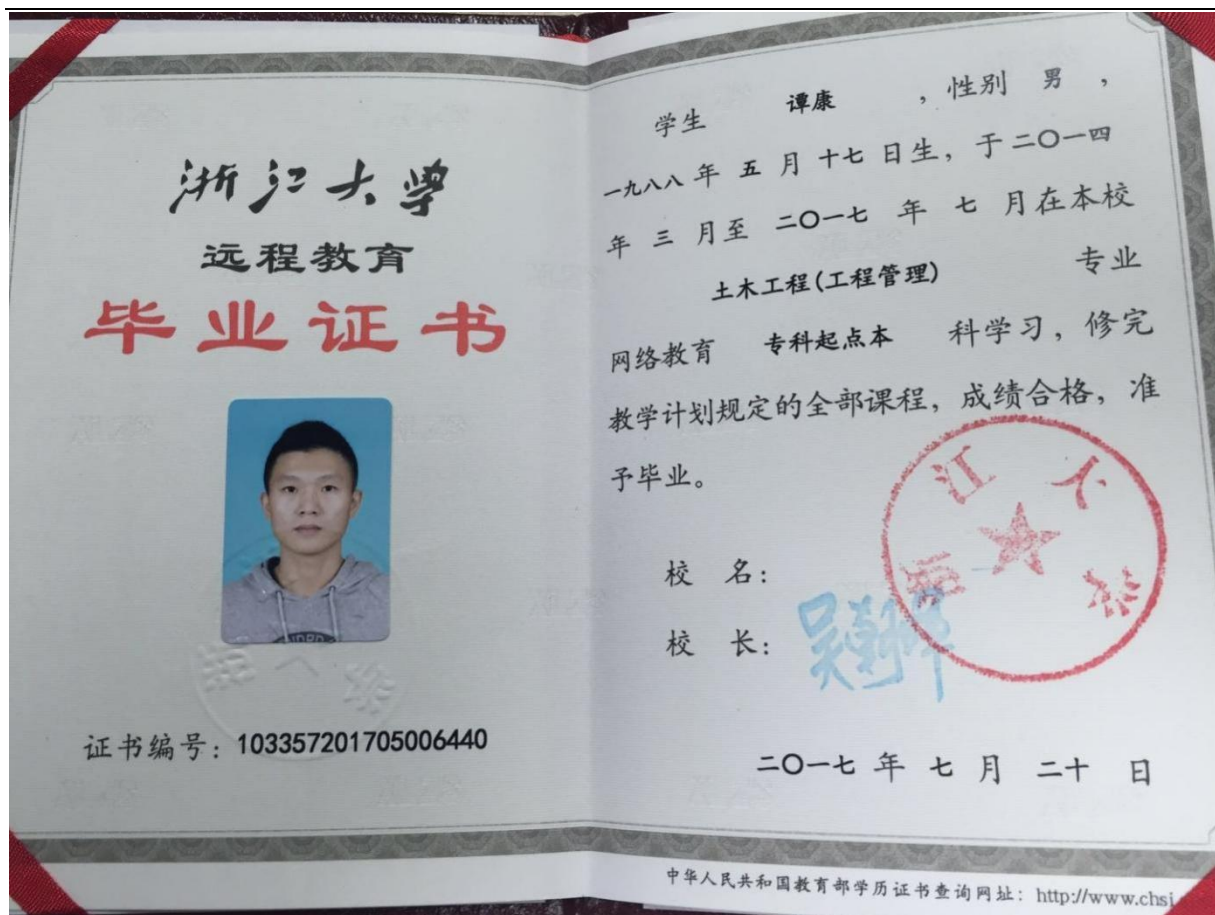 浙江大学
远程教育
毕业证书
证书编号：103357201705006440
学生 谭康 ，性别 男 ，
一九八八 年 五 月 十七 日生，于二〇一四
年 三 月至 二〇一七 年 七 月在本校
土木工程(工程管理) 专业
网络教育 专科起点本 科学习，修完
教学计划规定的全部课程，成绩合格，准
予毕业。
校 名：
浙江大学
校 长：
吴朝晖
二〇一七 年 七 月 二十 日
中华人民共和国教育部学历证书查询网址：http://www.chsi.